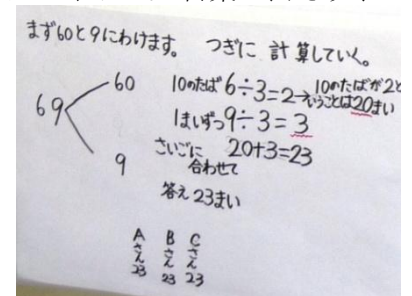 まず60と9にわけます。 つぎに 計算していく。
69
60
9
10のたば6÷3=2→10のたばが2と
いうことは20まい
1まいずつ9÷3=3
さいごに 20+3=23
合わせて
答え 23まい
Aさん23
Bさん23
Cさん23